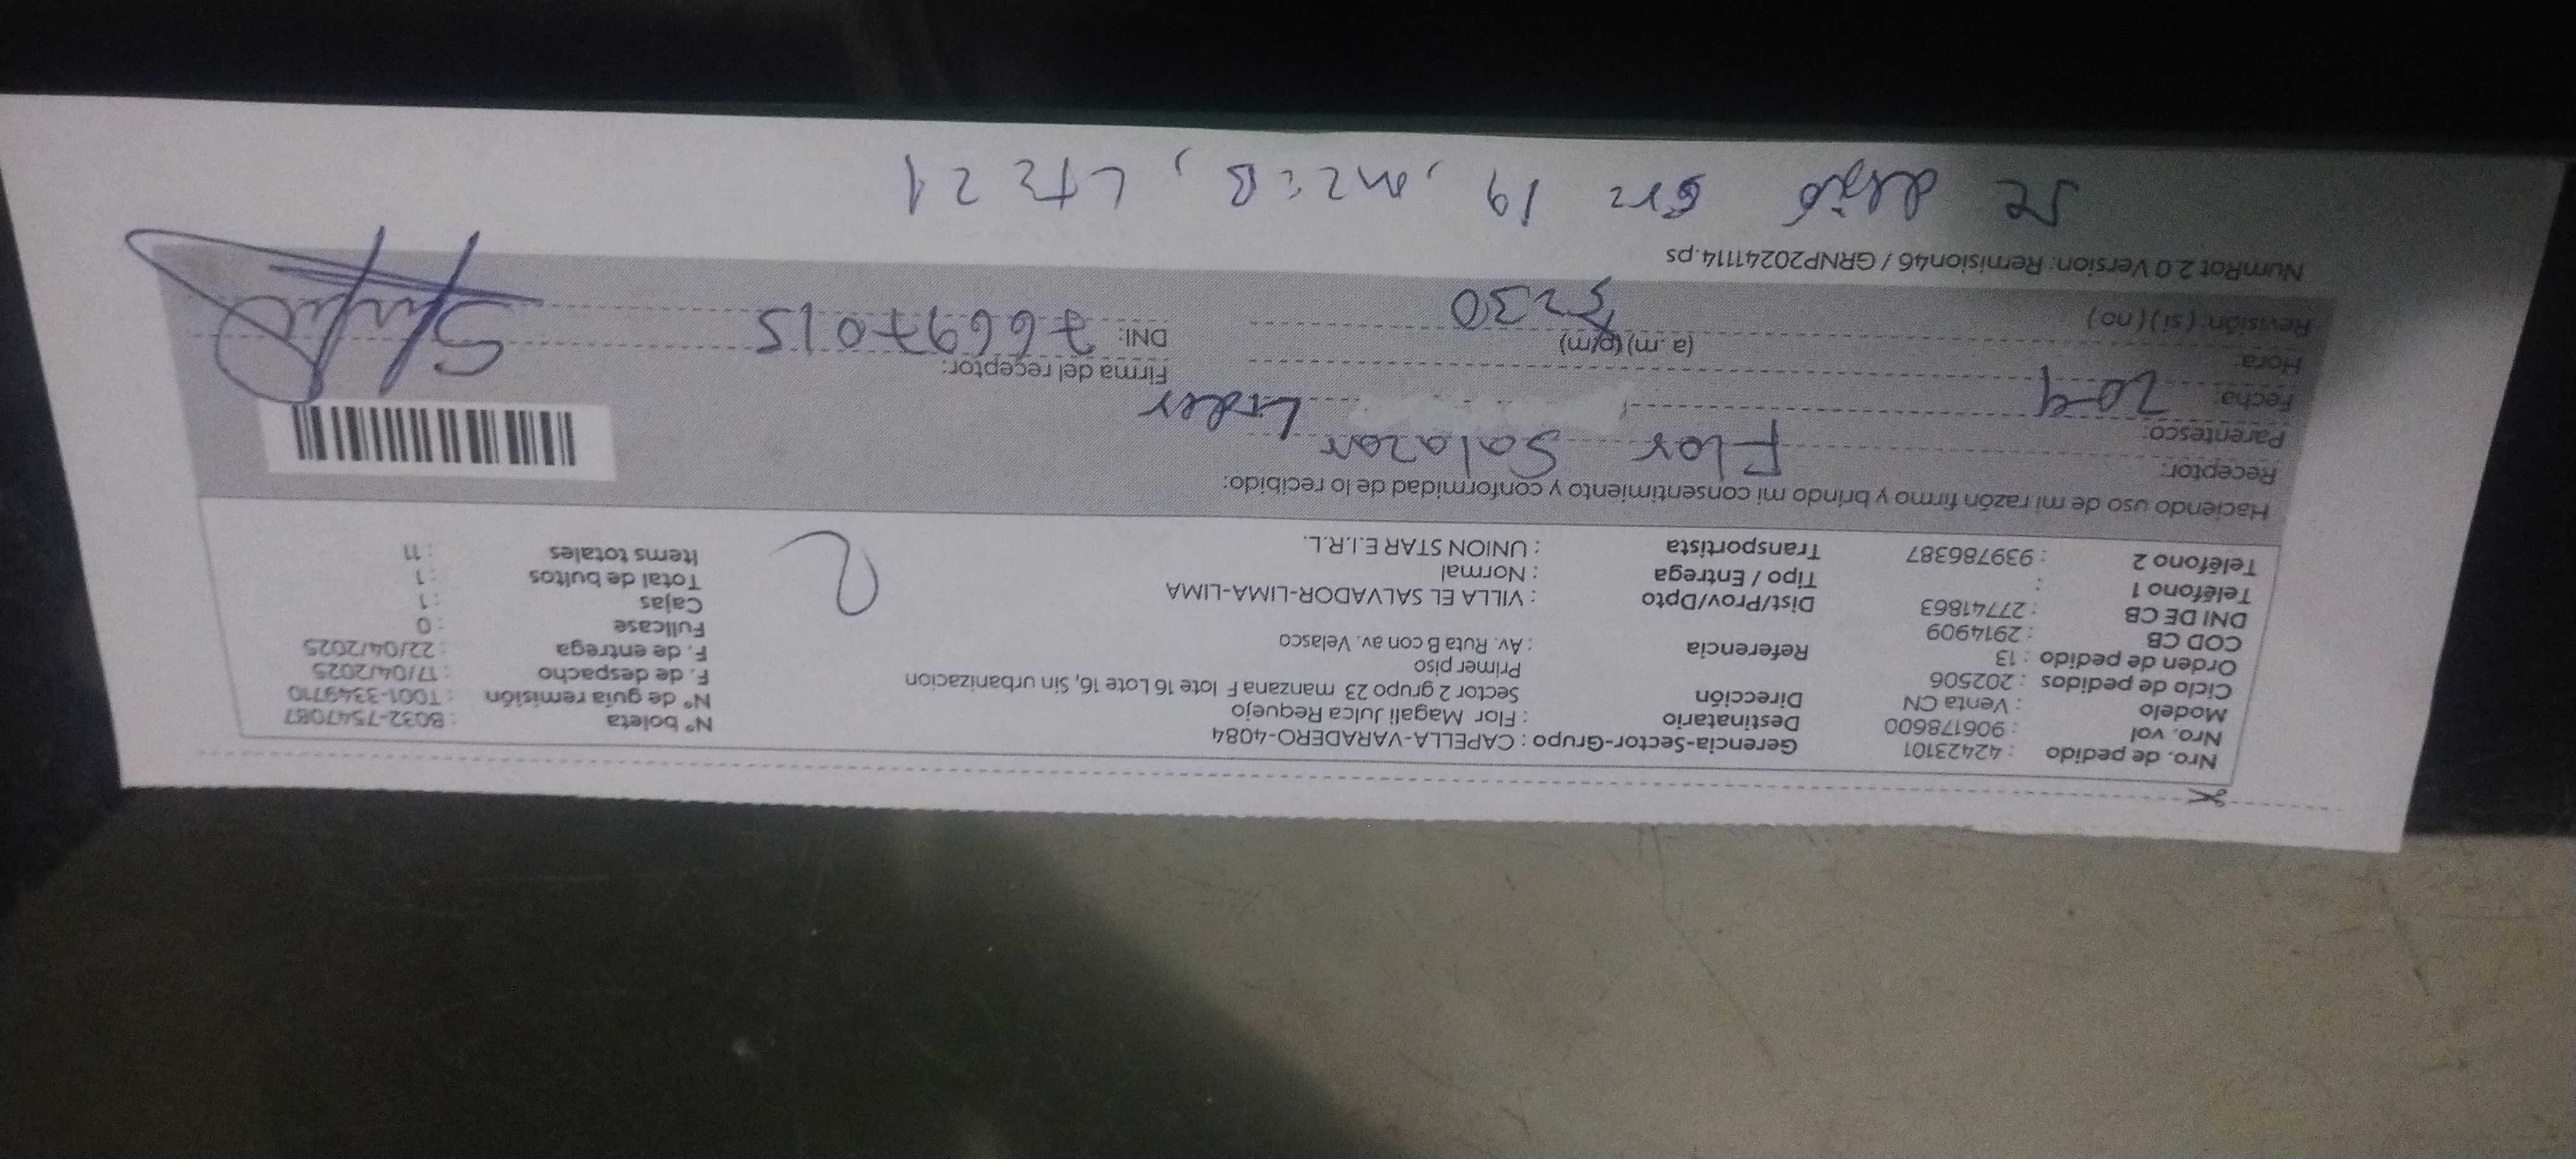 Nro. de pedido : 42423101
Nro. vol : 906178600
Modelo : Venta CN
Ciclo de pedidos : 202506
Orden de pedido : 13
COD CB : 2914909
DNI DE CB : 27741863
Teléfono 1 :
Teléfono 2 : 939786387
Gerencia-Sector-Grupo : CAPELLA-VARADERO-4084
Destinatario : Flor Magali Julca Requejo
Dirección Sector 2 grupo 23 manzana F lote 16 Lote 16, Sin urbanizacion
Primer piso
Referencia : Av. Ruta B con av. Velasco
Dist/Prov/Dpto : VILLA EL SALVADOR-LIMA-LIMA
Tipo / Entrega : Normal
Transportista : UNION STAR E.I.R.L.
N° boleta : B032-7547087
N° de guía remisión : T001-3349710
F. de despacho : 17/04/2025
F. de entrega : 22/04/2025
Fullcase : 0
Cajas : 1
Total de bultos : 1
Items totales : 11
Haciendo uso de mi razón firmo y brindo mi consentimiento y conformidad de lo recibido:
Receptor: Flor Salazar
Parentesco: Lider
Fecha: 20-4
Hora: (a. m) (p/m)
Revisión: (si) (no)
Firma del receptor:
DNI: 76697015
NumRot 2.0 Version: Remision46 / GRNP20241114.ps
se dejó Gr= 19, mz=B, Lt= 21